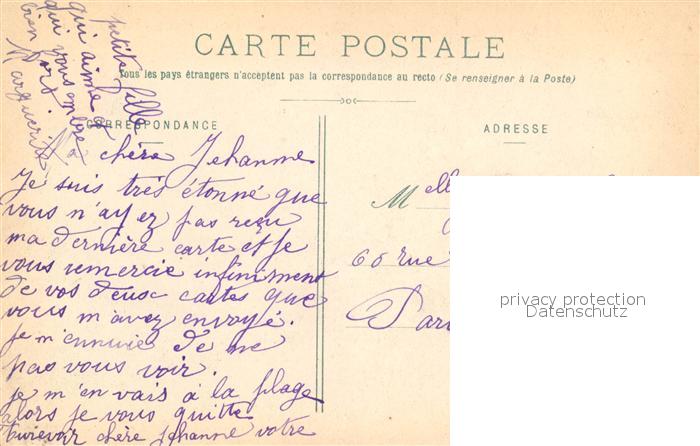 CARTE POSTALE
Tous les pays étrangers n'acceptent pas la correspondance au recto (Se renseigner à la Poste)
CORRESPONDANCE
chère Jehanne
Je suis très étonné que
vous n'ayez pas reçu
ma dernière carte et je
vous remercie infiniment
de vos deux cartes que
vous m'avez envoyé.
je m'ennuie de ne
pas vous voir.
je m'en vais à la plage
alors je vous quitte
aurevoir chère Jehanne votre
petite fille
qui aime et
qui vous embrasse
bien fort
Marguerite
ADRESSE
Melle
60 rue
Par
privacy protection
Datenschutz